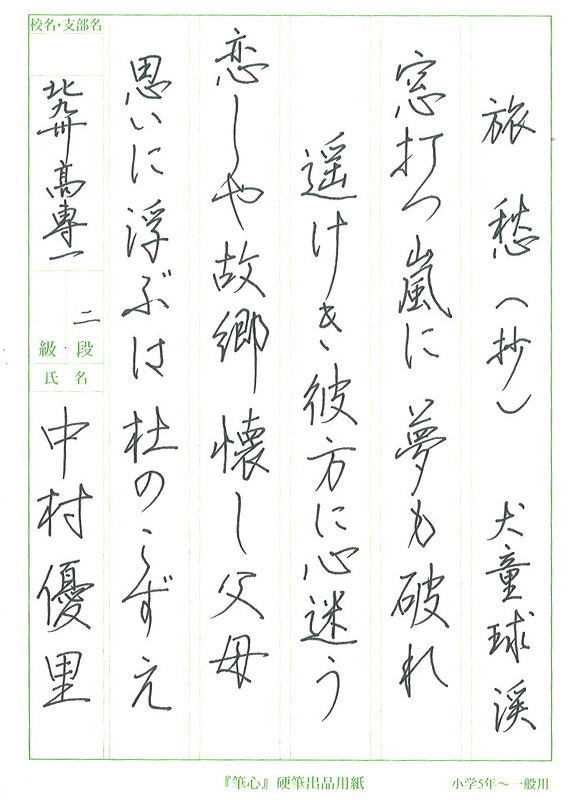 旅愁（抄） 犬童球渓
窓打つ嵐に夢も破れ
遥けき彼方に心迷う
恋しや故郷懐し父母
思いに浮ぶは杜のこずえ
校名・支部名
北九州高専一
二
級・段
氏名
中村優里
『筆心』硬筆出品用紙
小学5年〜一般用